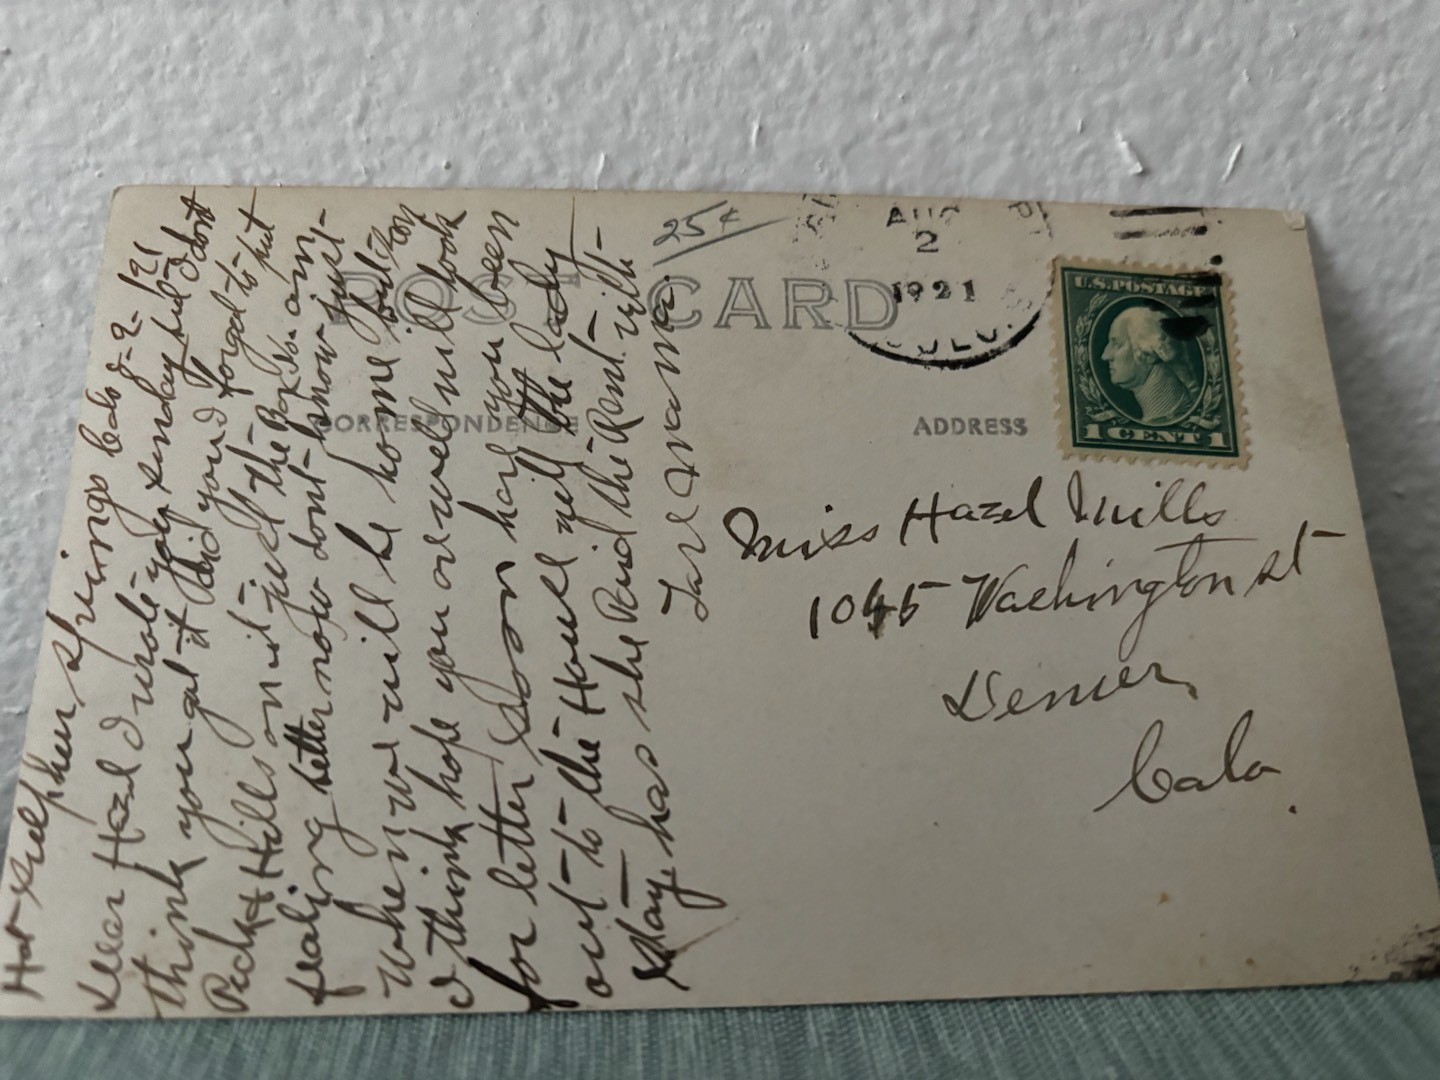 Hot Sulpher Springs Colo 8-2-1921
Dear Hazel I wrote you sunday but I dont
think you got it did you I forgot to put
Peck & Hills on it just the Box So. am
fealing better now dont know just
when we will be home but
I think hope you are well will look
for letter soon have you been
out to the House yet the lady
has she Paid the Rent
Mama.
25¢
POST CARD
CORRESPONDENCE
ADDRESS
AUG
2
1921
COLO.
U.S. POSTAGE
1 CENT 1
Miss Hazel Mills
1045 Washington st
Denver
Colo.